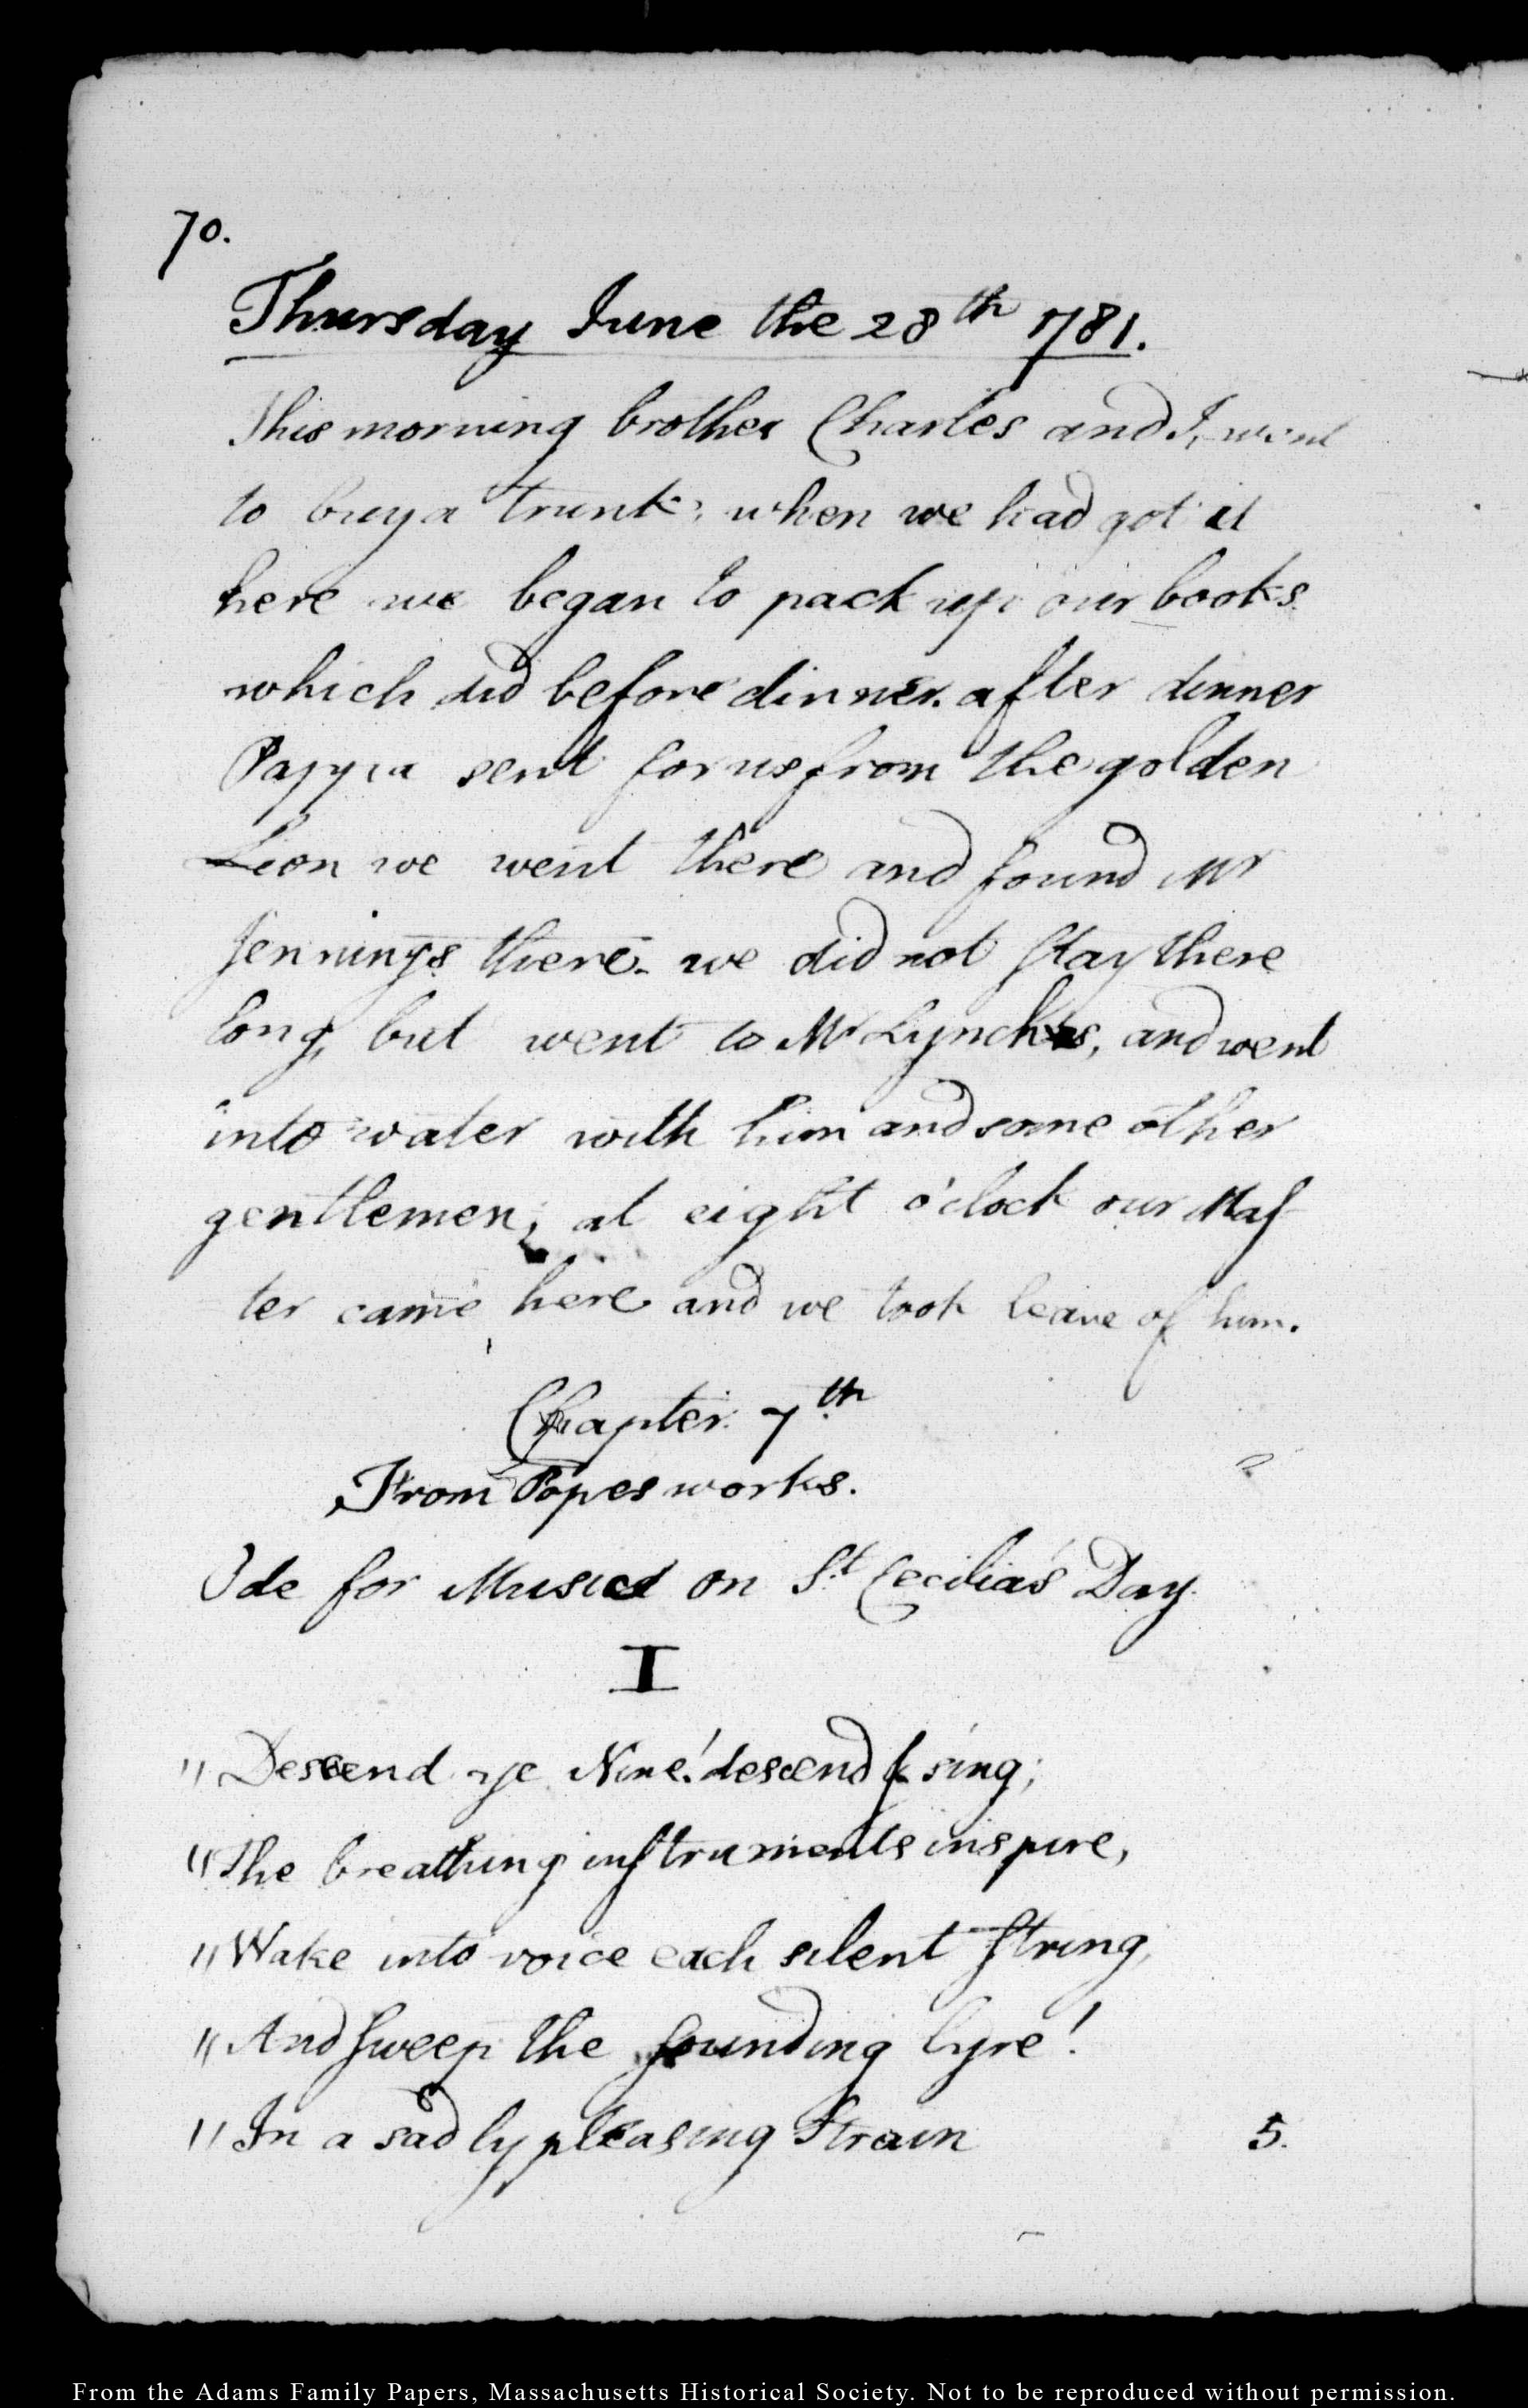 70.
Thursday June the 28th 1781.
This morning brother Charles and I, went
to buy a trunk; when we had got it
here we began to pack up our books
which did before dinner. after dinner
Pappa sent for us from the golden
Lion we went there and found Mr
Jennings there. we did not ſtay there
long, but went to Mr Lynch's, and went
into water with him and some other
gentlemen; at eight o'clock our Maſ
ter came here and we took leave of him.
Chapter 7th
From Popes works.
Ode for Music on St Cecilia's Day.
I
"Descend ye Nine! descend & sing;
"The breathing inſtruments inspire,
"Wake into voice each silent ſtring,
"And ſweep the ſounding lyre!
"In a sadly pleasing ſtrain 5.
From the Adams Family Papers, Massachusetts Historical Society. Not to be reproduced without permission.